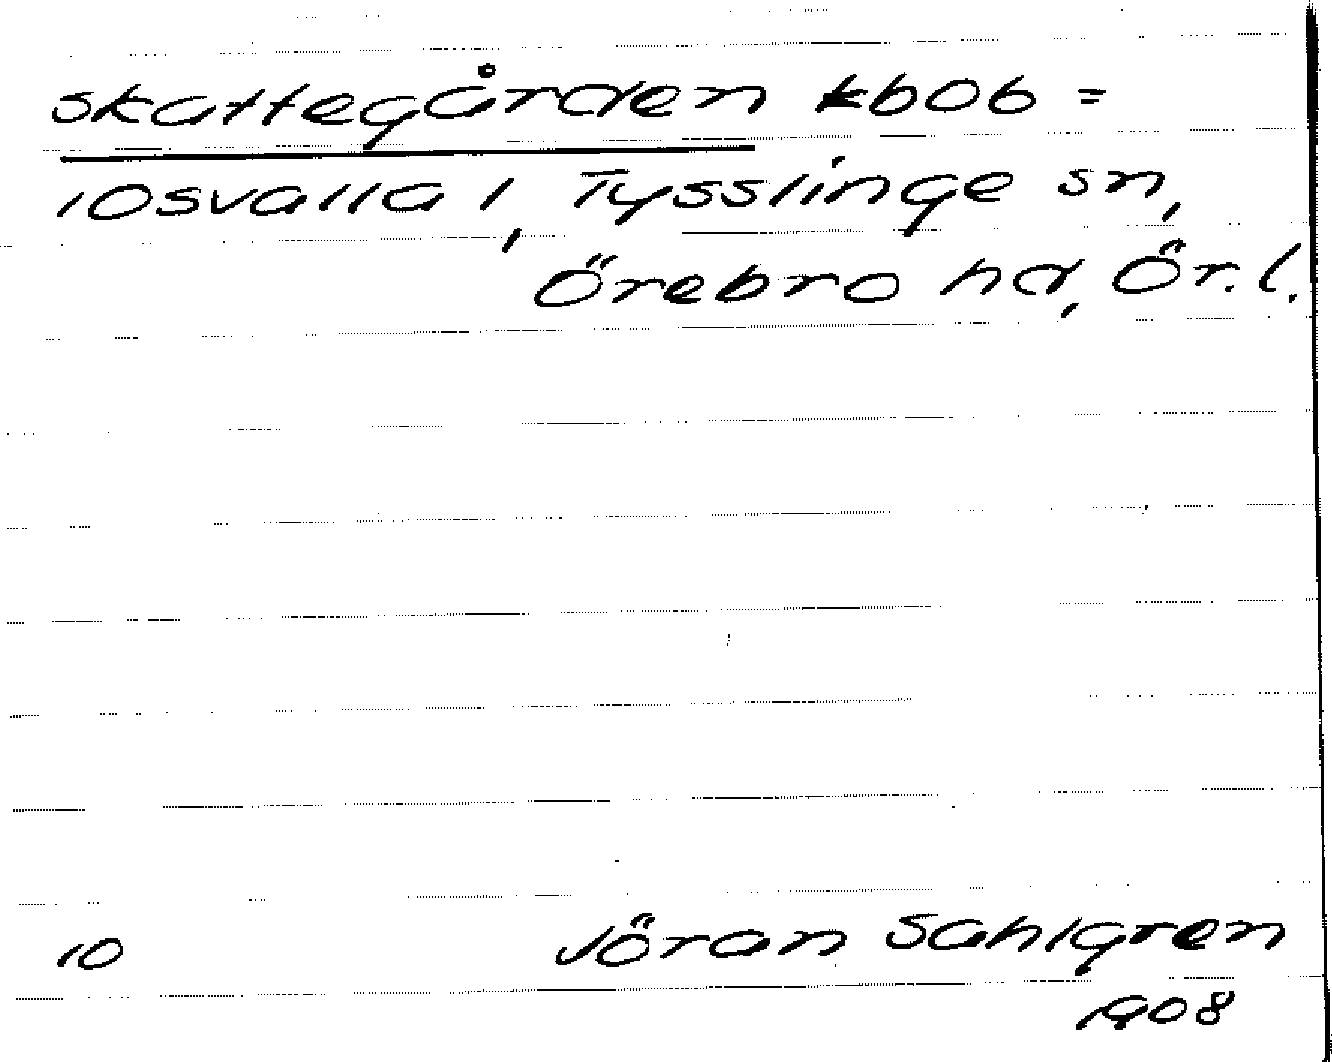 Skattegården kbob =
10svalla 1, Tysslinge sn,
Örebro hd, Ör. l.
10
Jöran Sahlgren
1908